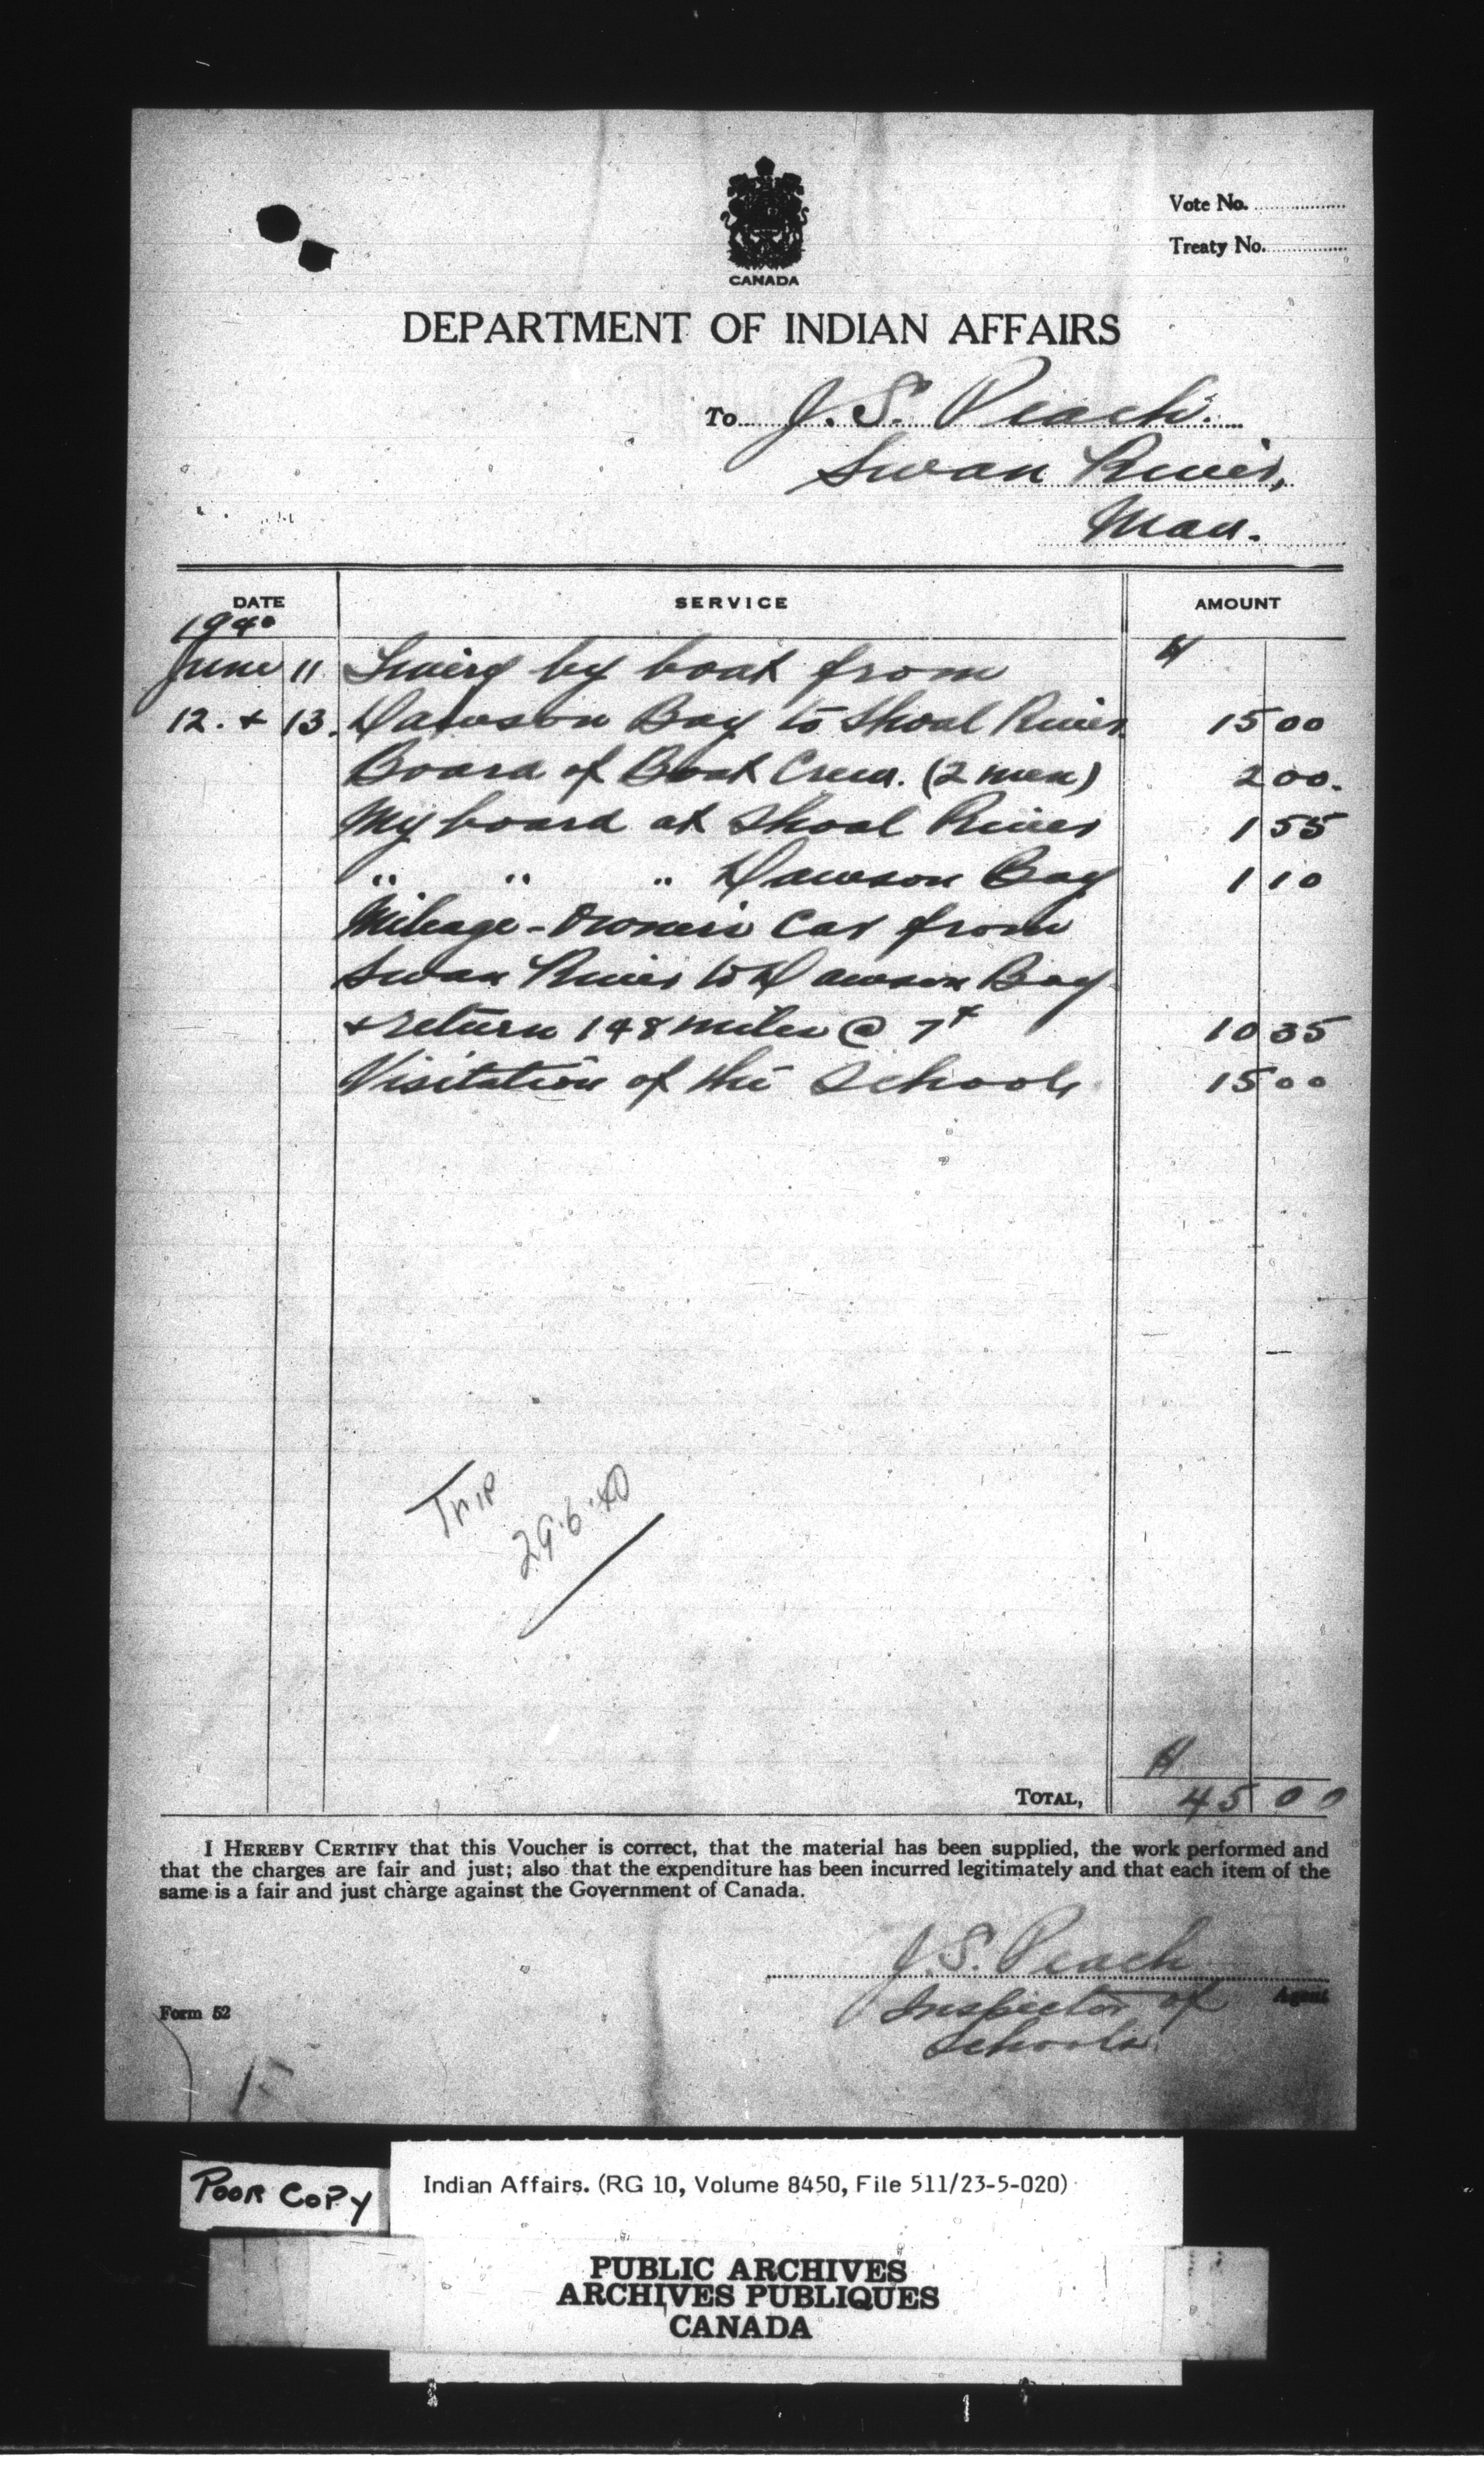 Vote No.
Treaty No.
CANADA
DEPARTMENT OF INDIAN AFFAIRS
To J. S. Peach.
Swan River,
Man.
DATE SERVICE AMOUNT
1940
June 11 Livery by boat from $
12. + 13. Dawson Bay to Shoal River 15 00
Board of Boat Crew. (2 men) 2 00.
My board at Shoal River 1 55
" " " Dawson Bay 1 10
Mileage - Owner's Car from
Swan River to Dawson Bay
+ return 148 miles @ 7¢ 10 35
Visitation of the Schools 15 00
Trip
29.6.40
$
TOTAL, 45 00
I HEREBY CERTIFY that this Voucher is correct, that the material has been supplied, the work performed and
that the charges are fair and just; also that the expenditure has been incurred legitimately and that each item of the
same is a fair and just charge against the Government of Canada.
J. S. Peach
Agent
Inspector of
Schools.
Form 52
POOR COPY
Indian Affairs. (RG 10, Volume 8450, File 511/23-5-020)
PUBLIC ARCHIVES
ARCHIVES PUBLIQUES
CANADA